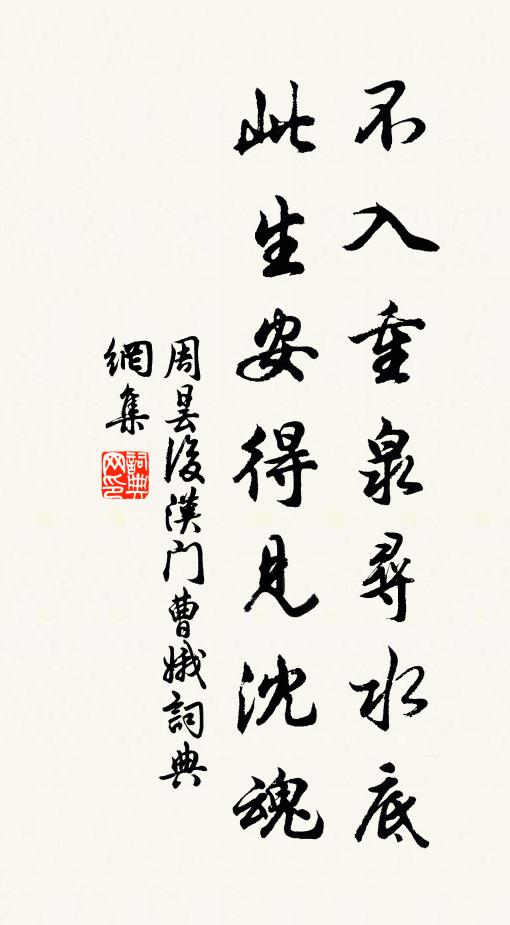 不入重泉尋水底
此生安得見沈魂
周曇後漢门曹娥詞典
網集
詞典网印